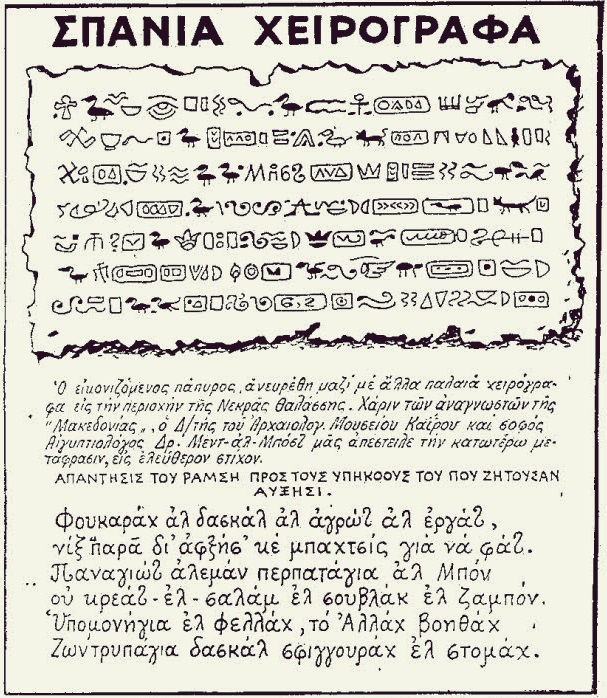 ΣΠΑΝΙΑ ΧΕΙΡΟΓΡΑΦΑ
Ὁ εἰκονιζόμενος πάπυρος, ἀνευρέθη μαζί μέ ἄλλα παλαιά χειρόγρα-
φα εἰς τήν περιοχήν τῆς Νεκρᾶς Θαλάσσης. Χάριν τῶν ἀναγνωστῶν τῆς
"Μακεδονίας", ὁ Δ/τής τοῦ Ἀρχαιολογ. Μουσείου Καΐρου καί σοφός
Αἰγυπτιολόγος Δρ. Μεντ-ἀλ-Μπόσζ μᾶς ἀπέστειλε τήν κατωτέρω με-
τάφρασιν, εἰς ἐλεύθερον στίχον.
ΑΠΑΝΤΗΣΙΣ ΤΟΥ ΡΑΜΣΗ ΠΡΟΣ ΤΟΥΣ ΥΠΗΚΟΟΥΣ ΤΟΥ ΠΟΥ ΖΗΤΟΥΣΑΝ
ΑΥΞΗΣΙ.
Φουκαράχ ἀλ δασκάλ ἀλ ἀγρώτ ἀλ ἐργάτ,
νίξ παρᾶ δι' ἀφξήσ' κέ μπαχτσίς γιά νά φάτ.
Παναγιώτ ἀλεμάν περπατάγια ἀλ Μπόν
οὐ κρεάτ-ἐλ-σαλάμ ἐλ σουβλάκ ἐλ ζαμπόν.
Ὑπομονήγια ἐλ φελλάχ, τό Ἀλλάχ βοηθάχ
Ζωντρυπάγια δασκάλ σφιγγουράχ ἐλ στομάχ.